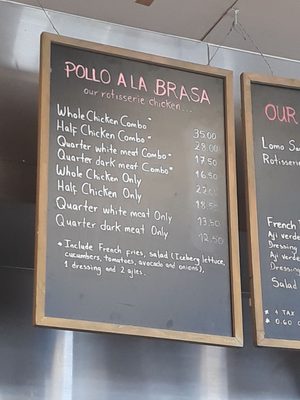 POLLO A LA BRASA
our rotisserie chicken...
Whole Chicken Combo* 35.00
Half Chicken Combo* 28.00
Quarter white meat Combo* 17.50
Quarter dark meat Combo* 16.50
Whole Chicken Only
Half Chicken Only
Quarter white meat Only 13.50
Quarter dark meat Only 12.50
* Include French fries, salad (Iceberg lettuce,
cucumbers, tomatoes, avocado and onions),
1 dressing and 2 ajies.
OUR
Lomo Sa
Rotisserie
French
Aji verde
Dressing
Aji verde
Dressing
Salad
* 4 TAX
* 0.60